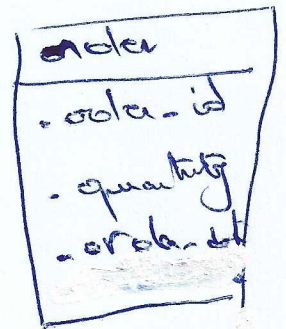 order
- order_id
- quantity
- order_dat